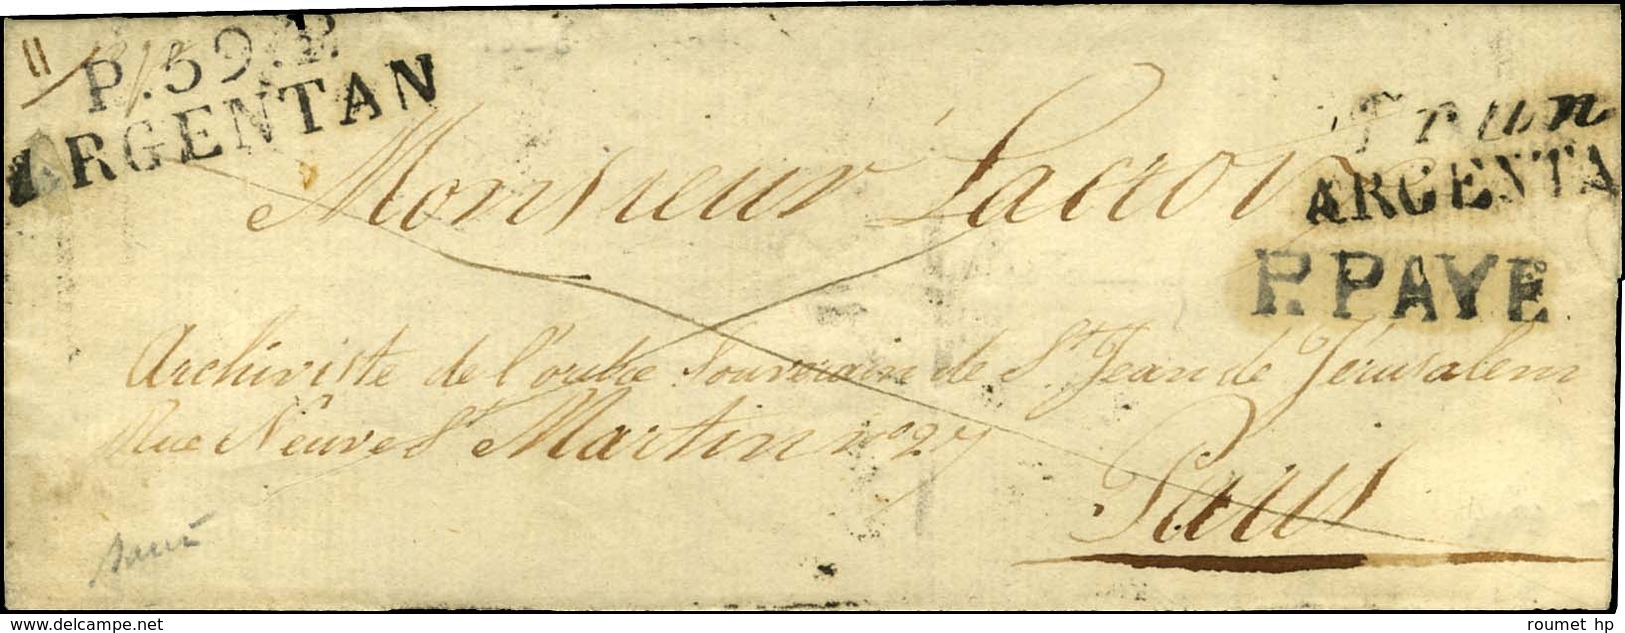 11
P.59.P.
ARGENTAN
Trun
ARGENTA
P.PAYE
Monsieur Lacroix
Archiviste de l'ordre Souverain de St. Jean de Jérusalem
Rue Neuve St Martin no 27
Paris
roumet hp